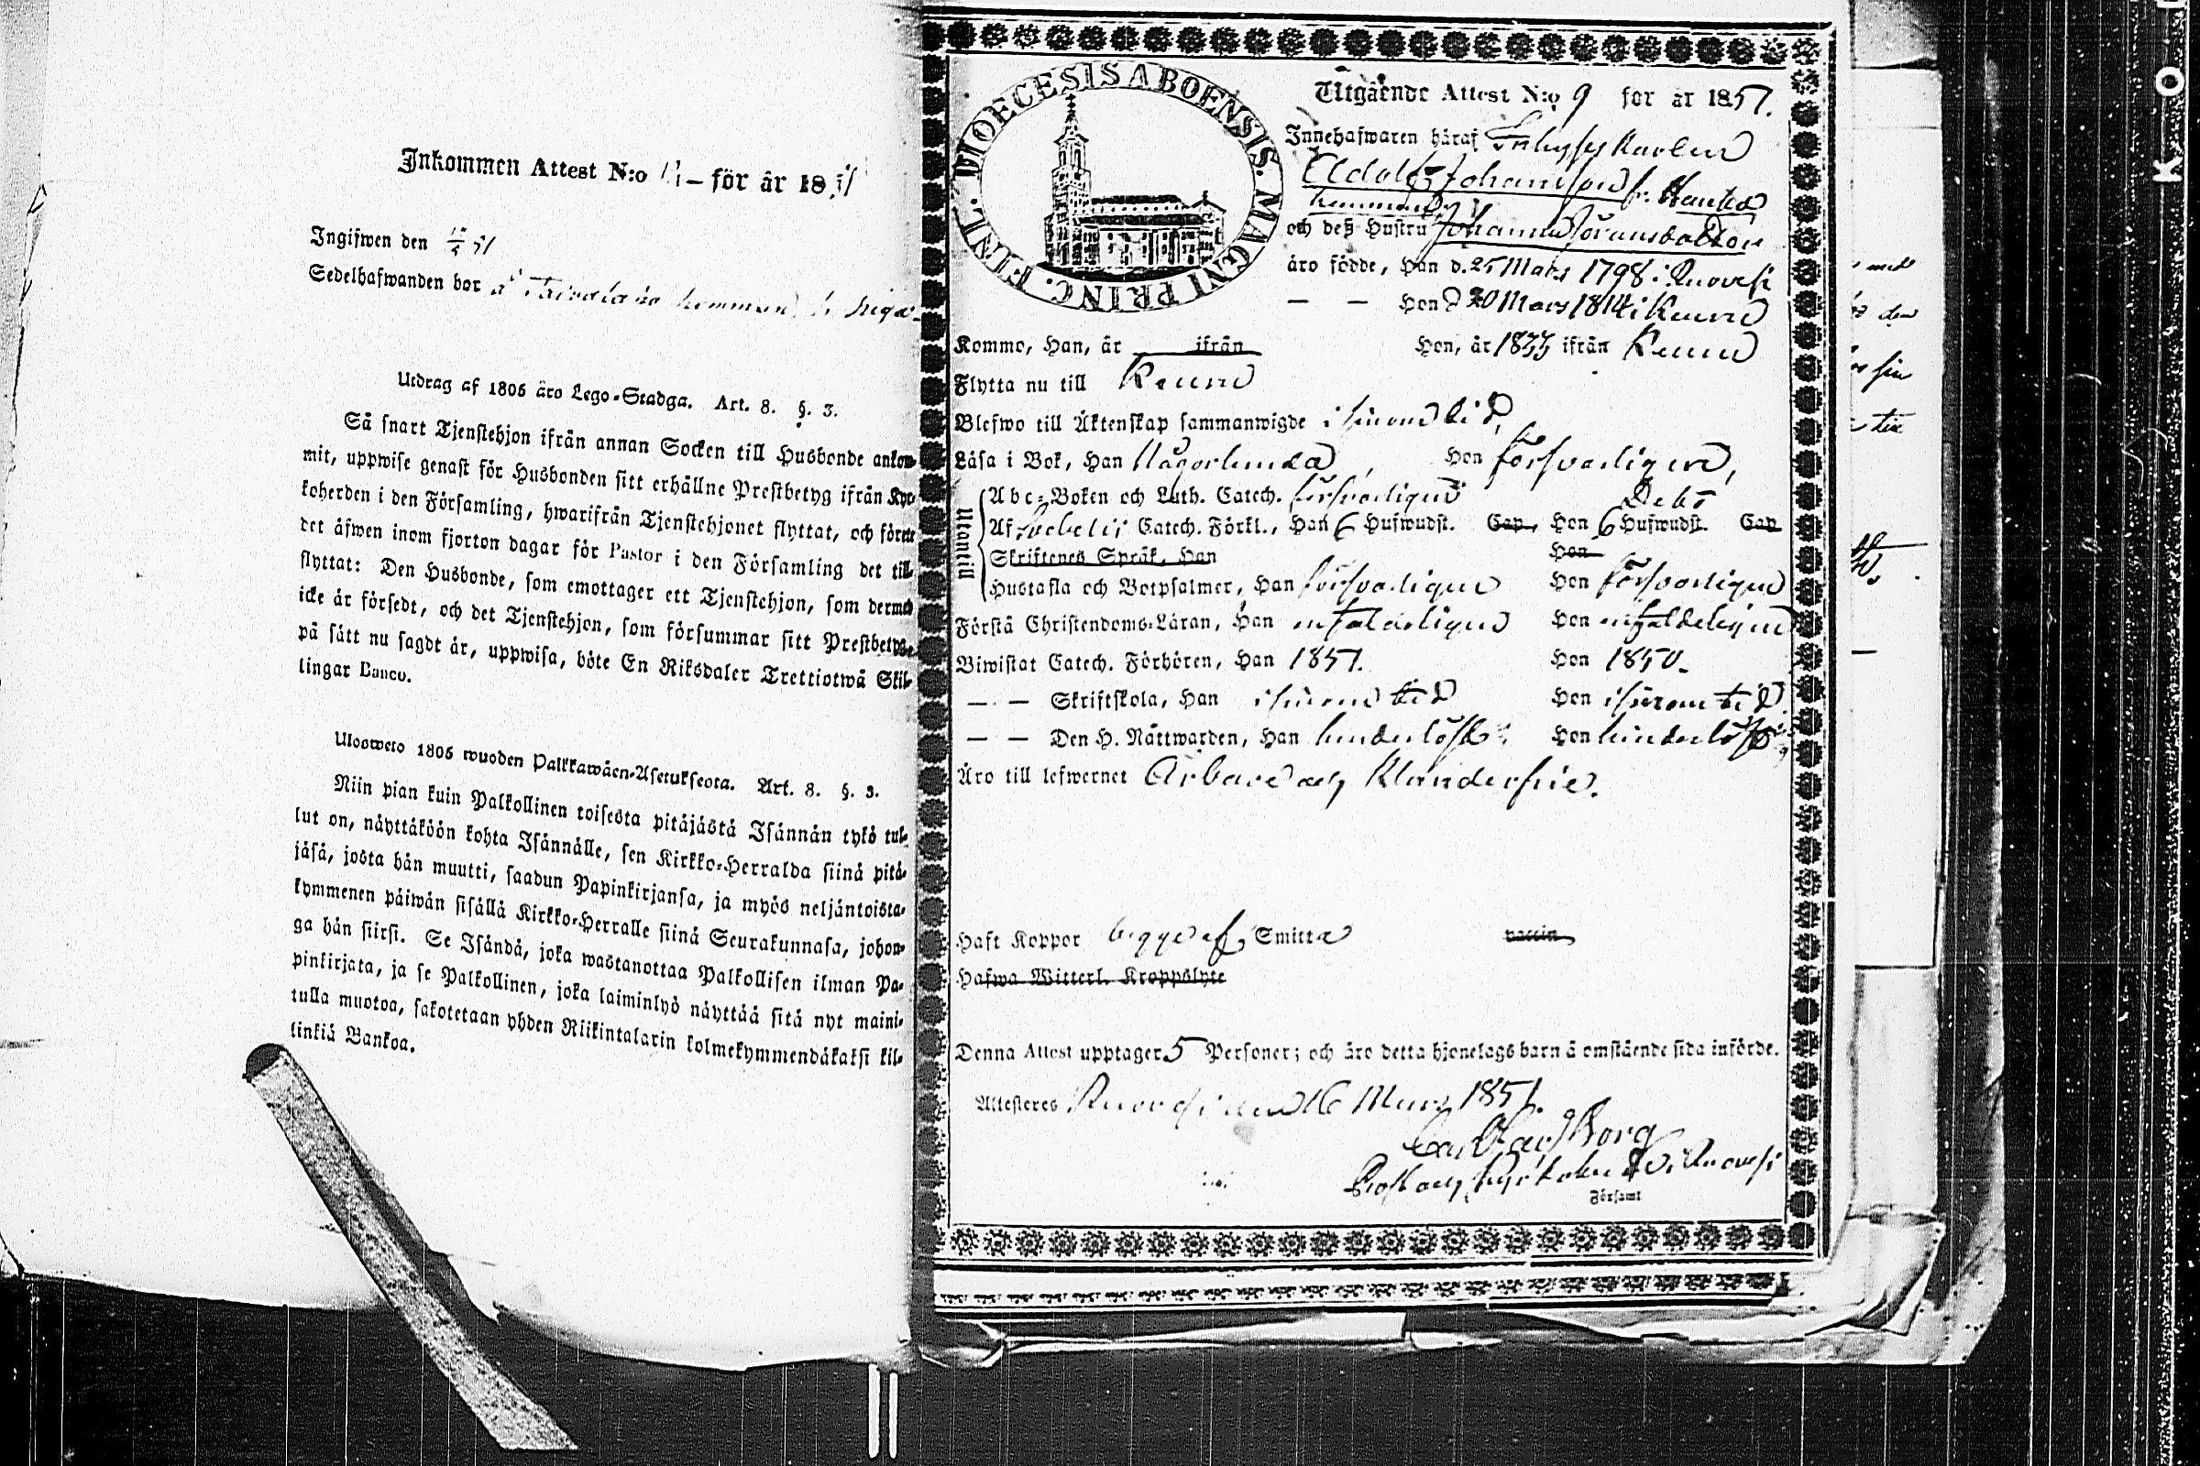 Inkommen Attest N:o för år 1851
Ingifwen den 51
Sedelhafwanden bor å
Utdrag af 1805 års Lego-Stadga. Art. 8. §. 3.
Så snart Tjenstehjon ifrån annan Socken till Husbonde ankom-
mit, uppwise genast för Husbonden sitt erhållne Prestbetyg ifrån Kyr-
koherden i den Församling, hwarifrån Tjenstehjonet flyttat, och förete
det äfwen inom fjorton dagar för Pastor i den Församling det till-
flyttat: Den Husbonde, som emottager ett Tjenstehjon, som dermed
icke är försedt, och det Tjenstehjon, som försummar sitt Prestbetyg
på sätt nu sagdt är, uppwisa, böte En Riksdaler Trettiotwå Skil-
lingar Banco.
Ulosweto 1805 wuoden Palkkawäen-Asetuksesta. Art. 8. §. 3.
Niin pian kuin Palkollinen toisesta pitäjästä Isännän tykö tul-
lut on, näyttäköön kohta Isännälle, sen Kirkko-Herralda siinä pitä-
jäsä, josta hän muutti, saadun Papinkirjansa, ja myös neljäntoista-
kymmenen päiwän sisällä Kirkko-Herralle siinä Seurakunnasa, johon-
ga hän siirsi. Se Isändä, joka wastanottaa Palkollisen ilman Pa-
pinkirjata, ja se Palkollinen, joka laiminlyö näyttää sitä nyt maini-
tulla muotoa, sakotetaan yhden Riikintalarin kolmekymmendäkaksi kil-
linkiä Bankoa.
DIOECESIS ABOENSIS. MAGNI PRINC. FINL.
Utgående Attest N:o 9 för år 1851.
Innehafwaren häraf Inhyseskarlen
Adolf Johansson fr.
och deß Hustru Johanna Göransdotter
äro födde, Han d. 25 Mars 1798 i Ruovesi
— — Hon d 20 Mars 1814 i Keuru
Kommo, Han, år ifrån Hon, år 1833 ifrån Keuru
Flytta nu till Keuru
Blefwo till Äktenskap sammanwigde i sinom tid
Läsa i Bok, Han Någorlunda, Hon försvarligen,
Utantill
Abc-Boken och Luth. Catech. försvarligen Dito
Af Svebelii Catech. Förkl., Han 6 Hufwudst. Cap. Hon 6 Hufwudst. Cap
Skriftenes Språk, Han Hon
Hustafla och Botpsalmer, Han försvarligen Hon försvarligen
Förstå Christendoms-Läran, Han enfaldeligen Hon enfaldeligen
Biwistat Catech. Förhören, Han 1851. Hon 1850.
— — Skriftskola, Han i sinom tid Hon i sinom tid
— — Den H. Nattwarden, Han hinderlöse Hon hinderlöse
Äro till lefwernet Ärbare och Klanderfrie.
Haft Koppor begge af Smitta vaccin.
Hafwa Witterl. Kroppslyte
Denna Attest upptager 5 Personer; och äro detta hjonelags barn å omstående sida införde.
Attesteras Ruovesi den 16 Mars 1851.
Borg
Prost och Kyrkoherde i Ruovesi
Församl
KOD